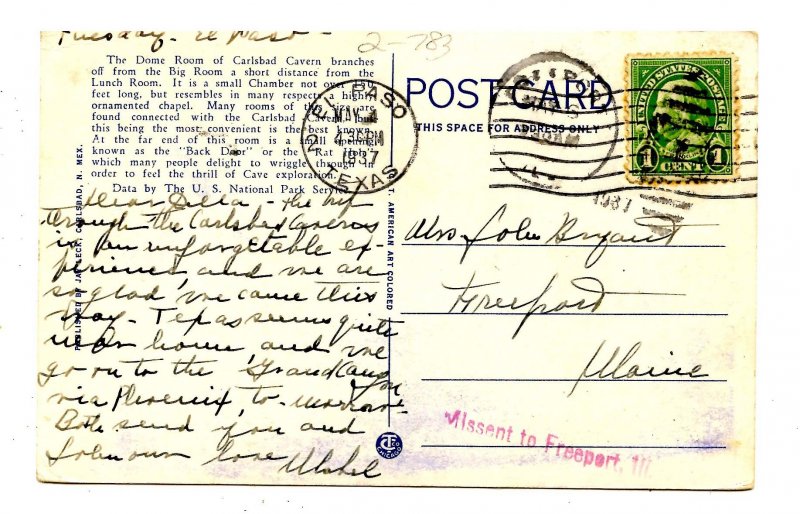 Tuesday - El Paso -
2-783
The Dome Room of Carlsbad Cavern branches
off from the Big Room a short distance from the
Lunch Room. It is a small Chamber not over 150
feet long, but resembles in many respects a highly
ornamented chapel. Many rooms of this size are
found connected with the Carlsbad Cavern, but
this being the most convenient is the best known.
At the far end of this room is a small opening
known as the "Back Door" or the "Rat Hole"
which many people delight to wriggle through in
order to feel the thrill of Cave exploration.
Data by the U. S. National Park Service
Dear Della - The trip
through the Carlsbad Caverns
is an unforgetable ex-
perience, and we are
so glad we came this
way. Texas seems quite
near home, and we
go on to the Grand Canyon
via Phoenix to-morrow.
Both send you and
John our love
Mabel
PUBLISHED BY LECK, CARLSBAD, N. MEX.
C. T. AMERICAN ART COLORED
CT CO
CHICAGO
POST CARD
THIS SPACE FOR ADDRESS ONLY
EL PASO
MAY 4
4 30 PM
1937
TEXAS
2
1937
UNITED STATES POSTAGE
1 CENT 1
Mrs John Bryant
Freeport
Maine
Missent to Freeport, Ill.